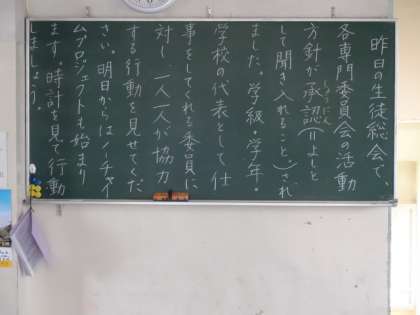 昨日の生徒総会で、
各専門委員会の活動
方針が承認(=よしと
しょうにん
して聞き入れること。)され
ました。学級・学年・
学校の代表として仕
事をしてくれる委員に
対し、一人一人が協力
する行動を見せてくだ
さい。明日からはノーチャイ
ムプロジェクトも始まり
ます。時計を見て行動
しましょう。